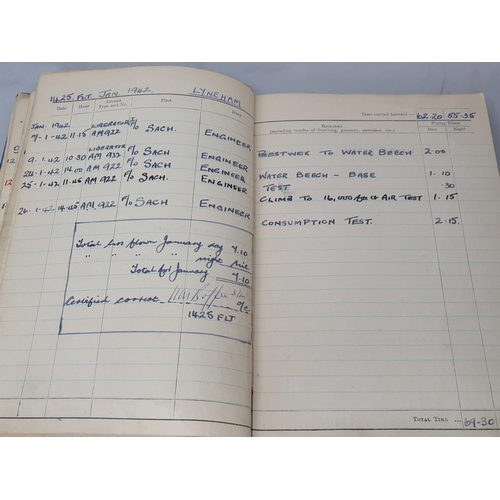 1425 FLT JAN. 1942. LYNEHAM
Date Hour Aircraft Type and No. Pilot Duty
JAN. 1942. LIBERATOR
7-1-42 11.15 AM922 F/O SACH. ENGINEER
LIBERATOR
9.1.42 10.30 AM 922 F/O SACH ENGINEER
24.1.42 14.00 AM 922 F/O SACH. ENGINEER
25.1.42 11.45 AM 922 F/O SACH. ENGINEER
26.1.42 14.45 AM 922 F/O SACH. ENGINEER
Total hrs flown January day 7.10
" " " " night Nil
Total for January 7.10
Certified correct
1425 FLT
Time carried forward :— 62.20 55-35
REMARKS Flying Times
(including results of bombing, gunnery, exercises, etc.) Day Night
PRESTWICK TO WATER BEECH 2.00
WATER BEECH - BASE 1.10
TEST .30
CLIMB TO 16,000 FT & AIR TEST 1.15
CONSUMPTION TEST. 2.15
TOTAL TIME ... 69-30